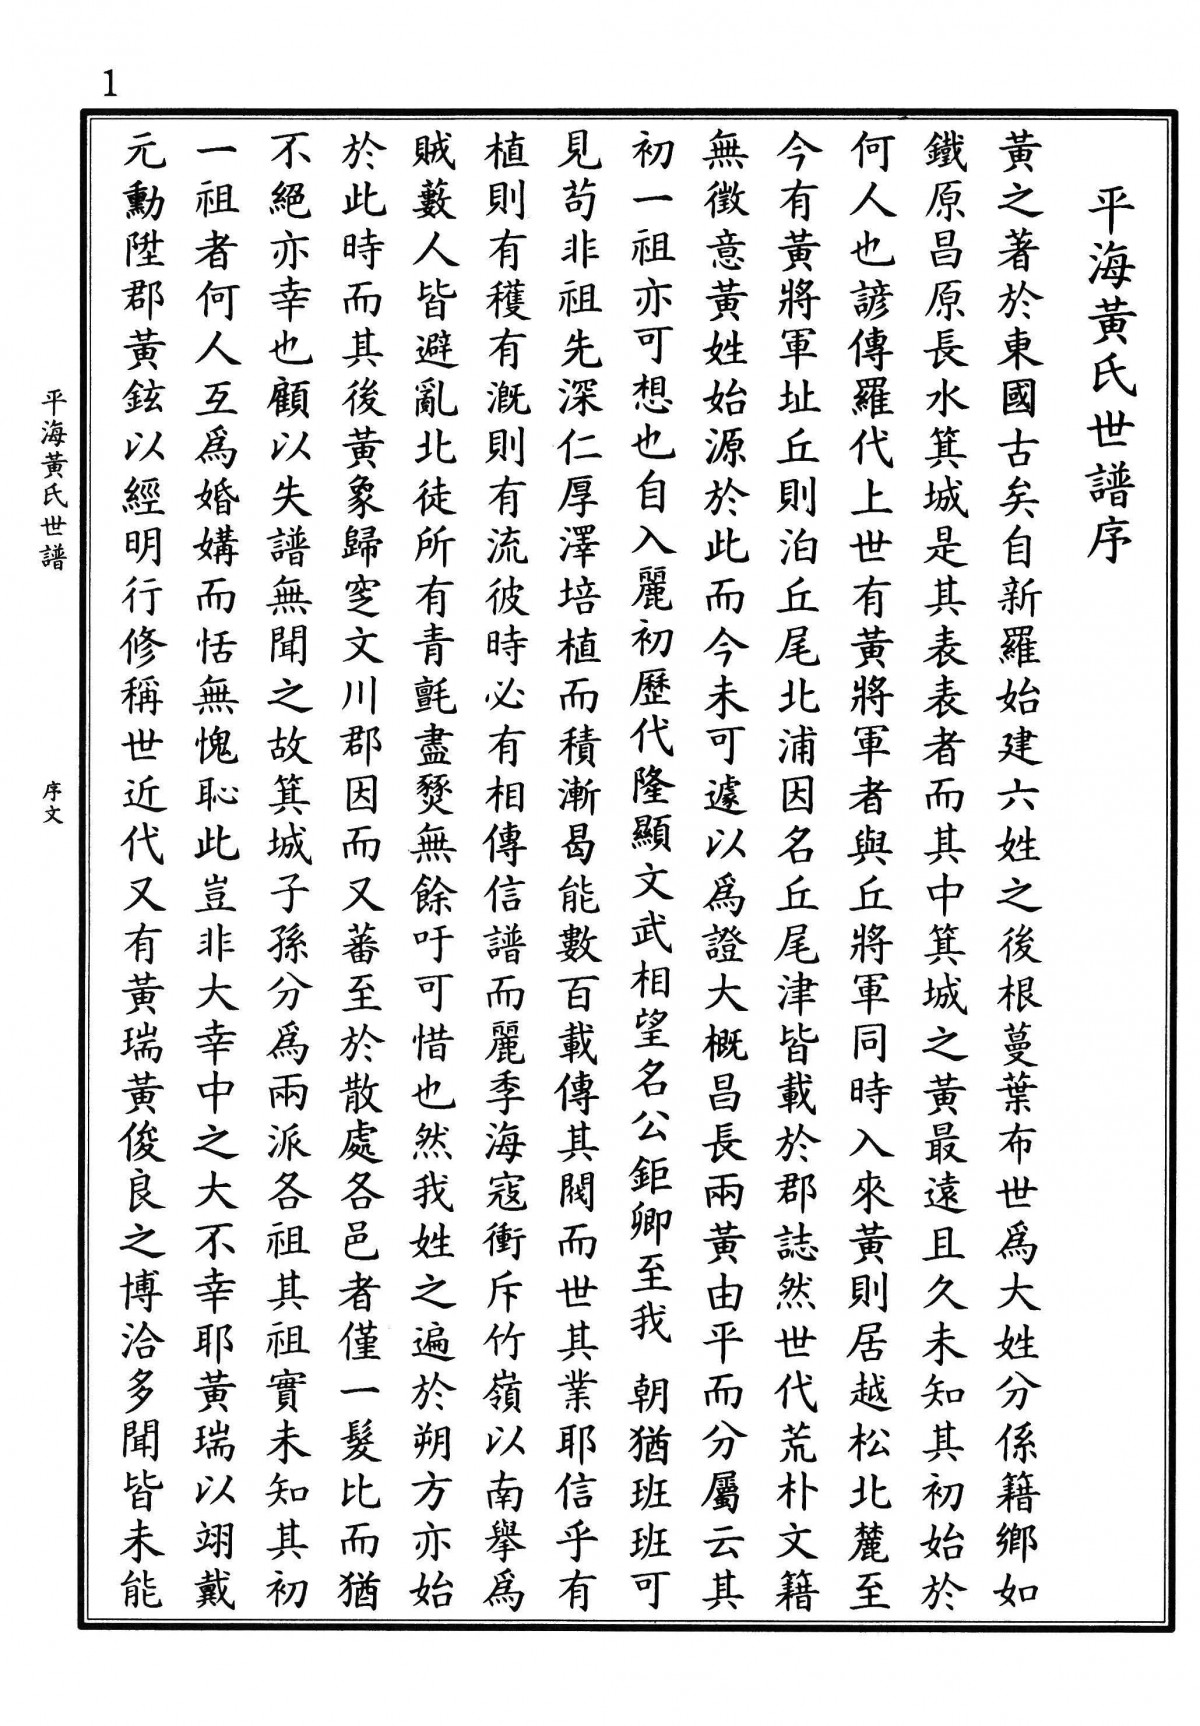 1
平海黃氏世譜序
黃之著於東國古矣自新羅始建六姓之後根蔓葉布世爲大姓分係籍鄉如
鐵原昌原長水箕城是其表表者而其中箕城之黃最遠且久未知其初始於
何人也諺傳羅代上世有黃將軍者與丘將軍同時入來黃則居越松北麓至
今有黃將軍址丘則泊丘尾北浦因名丘尾津皆載於郡誌然世代荒朴文籍
無徵意黃姓始源於此而今未可遽以爲證大概昌長兩黃由平而分屬云其
初一祖亦可想也自入麗初歷代隆顯文武相望名公鉅卿至我 朝猶班班可
見苟非祖先深仁厚澤培植而積漸曷能數百載傳其閥而世其業耶信乎有
植則有穫有漑則有流彼時必有相傳信譜而麗季海寇衝斥竹嶺以南擧爲
賊藪人皆避亂北徒所有青氈盡爇無餘吁可惜也然我姓之遍於朔方亦始
於此時而其後黃象歸窆文川郡因而又蕃至於散處各邑者僅一髮比而猶
不絕亦幸也顧以失譜無聞之故箕城子孫分爲兩派各祖其祖實未知其初
一祖者何人互爲婚媾而恬無愧恥此豈非大幸中之大不幸耶黃瑞以翊戴
元勳陞郡黃鉉以經明行修稱世近代又有黃瑞黃俊良之博洽多聞皆未能
平海黃氏世譜
序文